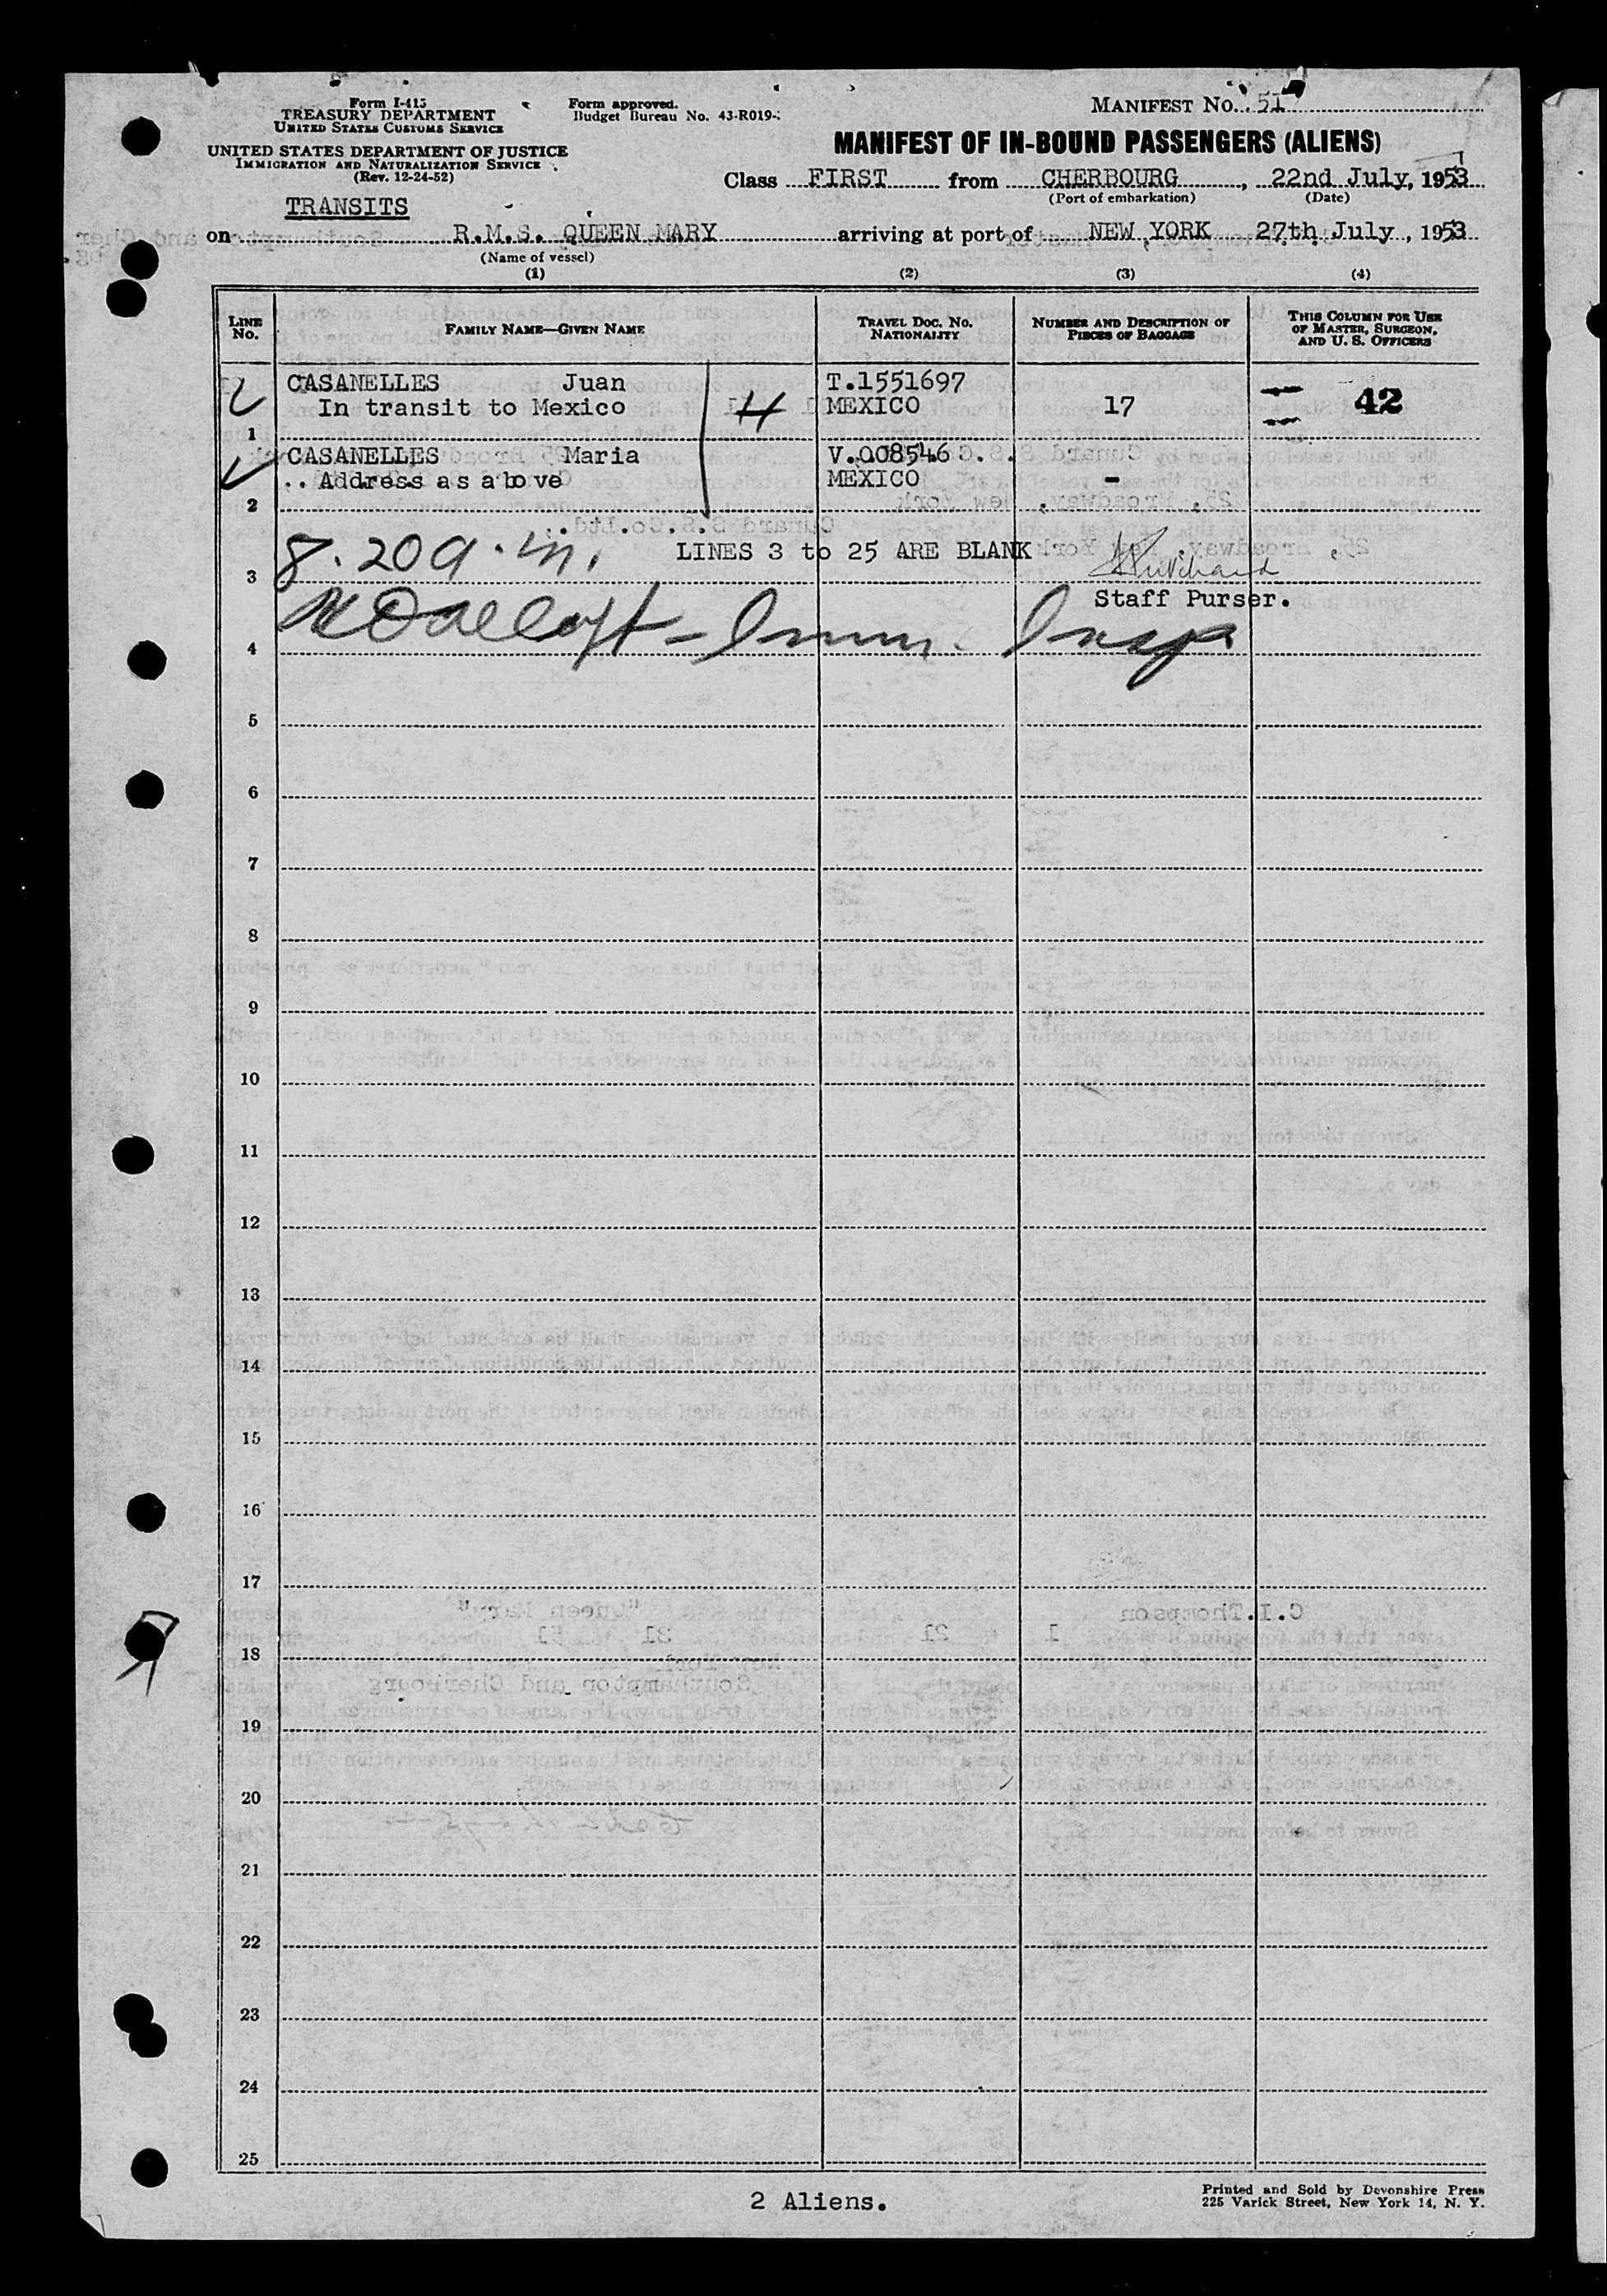 Form I-415
TREASURY DEPARTMENT
UNITED STATES CUSTOMS SERVICE
UNITED STATES DEPARTMENT OF JUSTICE
IMMIGRATION AND NATURALIZATION SERVICE
(Rev. 12-24-52)
Form approved.
Budget Bureau No. 43-R019-
MANIFEST No. 51
MANIFEST OF IN-BOUND PASSENGERS (ALIENS)
Class FIRST from CHERBOURG, 22nd July, 1953
(Port of embarkation) (Date)
TRANSITS
on R.M.S. QUEEN MARY arriving at port of NEW YORK 27th July, 1953
(Name of vessel)
(1) (2) (3) (4)
LINE No. FAMILY NAME—GIVEN NAME TRAVEL DOC. NO. NATIONALITY NUMBER AND DESCRIPTION OF PIECES OF BAGGAGE THIS COLUMN FOR USE OF MASTER, SURGEON, AND U. S. OFFICERS
CASANELLES Juan T.1551697
In transit to Mexico MEXICO 17 42
1
CASANELLES Maria V.008546
Address as above MEXICO -
2
8.20 a.m. LINES 3 to 25 ARE BLANK
3
Staff Purser.
Imm. Insp
4
5
6
7
8
9
10
11
12
13
14
15
16
17
18
19
20
21
22
23
24
25
2 Aliens.
Printed and Sold by Devonshire Press
225 Varick Street, New York 14, N. Y.